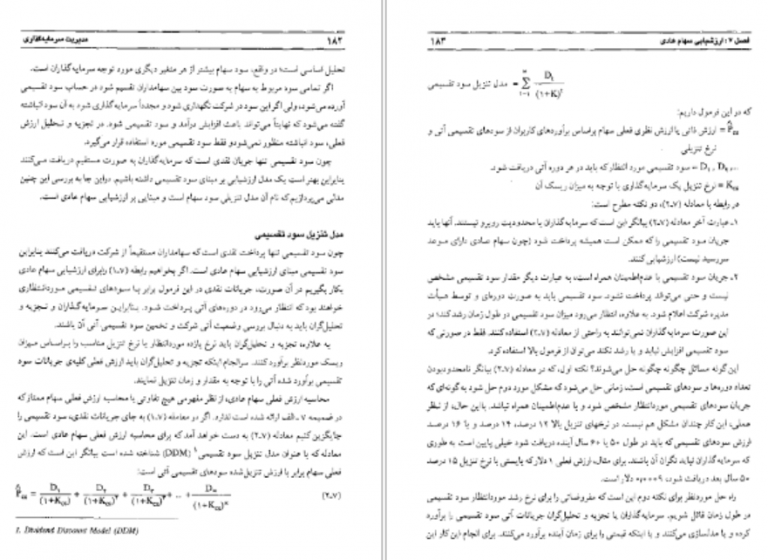 ۱۸۲ مدیریت سرمایه‌گذاری
تحلیل اساسی است؛ در واقع، سود سهام بیشتر از هر متغیر دیگری مورد توجه سرمایه‌گذاران است.
اگر تمامی سود مربوط به سهام به صورت سود بین سهامداران تقسیم شود در حساب سود تقسیمی
آورده می‌شود، ولی اگر این سود در شرکت نگهداری شود و مجدداً سرمایه‌گذاری شود به آن سود انباشته
گفته می‌شود که نهایتاً می‌تواند باعث افزایش درآمد و سود تقسیمی شود. در تجزیه و تحلیل ارزش
فعلی، سود انباشته منظور نمی‌شود و فقط سود تقسیمی مورد استفاده قرار می‌گیرد.
چون سود تقسیمی تنها جریان نقدی است که سرمایه‌گذاران به صورت مستقیم دریافت می‌کنند
بنابراین بهتر است یک مدل ارزشیابی بر مبنای سود تقسیمی داشته باشیم. در این جا به بررسی این چنین
مدلی می‌پردازیم که نام آن مدل تنزیلی سود سهام است و مبنایی بر ارزشیابی سهام عادی است.
مدل تنزیل سود تقسیمی
چون سود تقسیمی تنها پرداخت نقدی است که سهامداران مستقیماً از شرکت دریافت می‌کنند بنابراین
سود تقسیمی مبنای ارزشیابی سهام عادی است. اگر بخواهیم رابطه (۷ـ۱) را برای ارزشیابی سهام عادی
بکار بگیریم در آن صورت، جریانات نقدی در این فرمول برابر با سودهای تقسیمی موردانتظاری
خواهند بود که انتظار می‌رود در دوره‌های آتی پرداخت شود. بنابراین سرمایه‌گذاران و تجزیه و
تحلیل‌گران باید به دنبال بررسی وضعیت آتی شرکت و تخمین سود تقسیمی آتی آن باشند.
به علاوه، تجزیه و تحلیل‌گران باید نرخ بازده موردانتظار یا نرخ تنزیل مناسب را براساس میزان
ریسک موردنظر برآورد کنند. سرانجام اینکه تجزیه و تحلیل‌گران باید ارزش فعلی کلیه‌ی جریانات سود
تقسیمی برآورد شده آتی را با توجه به مقدار و زمان تنزیل نمایند.
محاسبه ارزش فعلی سهام عادی، از نظر مفهومی هیچ تفاوتی با محاسبه ارزش فعلی سهام ممتاز که
در ضمیمه ۷ ـ الف ارائه شده است ندارد. اگر در معامله (۷ـ۱) به جای جریانات نقدی، سود تقسیمی را
جایگزین کنیم معادله (۷ـ۲) به دست خواهد آمد که برای محاسبه ارزش فعلی سهام عادی است. این
معادله که با عنوان مدل تنزیل سود تقسیمی¹ (DDM) شناخته شده است بیانگر این است که ارزش
فعلی سهام برابر با ارزش تنزیل‌شده سودهای تقسیمی آتی است:
P̂cs = D۱/(۱+Kcs) + D۲/(۱+Kcs)² + D۳/(۱+Kcs)³ + ... + D∞/(۱+Kcs)∞ (۷ـ۲)
1. Dividend Discount Model (DDM)
فصل ۷ : ارزشیابی سهام عادی ۱۸۳
= Σ Dt/(۱+K)t = مدل تنزیل سود تقسیمی
که در این فرمول داریم:
P̂cs = ارزش ذاتی یا ارزش نظری فعلی سهام براساس برآوردهای کاربران از سودهای تقسیمی آتی و
نرخ تنزیلی
D۱, D۲, ... = سود تقسیمی مورد انتظار که باید در هر دوره آتی دریافت شود.
Kcs = نرخ تنزیل یک سرمایه‌گذاری با توجه به میزان ریسک آن
در رابطه با معادله (۷ـ۲)، دو نکته مطرح است:
۱ـ عبارت آخر معادله (۷ـ۲) بیانگر این است که سرمایه‌گذاران با محدودیت روبرو نیستند. آنها باید
جریان سود تقسیمی را که ممکن است همیشه پرداخت شود (چون سهام عادی دارای موعد
سررسید نیست) ارزشیابی کنند.
۲ـ جریان سود تقسیمی با عدم‌اطمینان همراه است، به عبارت دیگر مقدار سود تقسیمی مشخص
نیست و حتی می‌تواند پرداخت نشود. سود تقسیمی باید به صورت دوره‌ای و توسط هیأت
مدیره شرکت اعلام شود. به علاوه، انتظار می‌رود میزان سود تقسیمی در طول زمان رشد کند؛ در
این صورت سرمایه‌گذاران نمی‌توانند به راحتی از معادله (۷ـ۲) استفاده کنند. فقط در صورتی که
سود تقسیمی افزایش نیابد و یا رشد نکند می‌توان از فرمول بالا استفاده کرد.
این گونه مسائل چگونه چگونه حل می‌شوند؟ نکته اول، که در معادله (۷ـ۲) بیانگر نامحدودبودن
تعداد دوره‌ها و سودهای تقسیمی است، زمانی حل می‌شود که مشکل مورد دوم حل شود به گونه‌ای که
جریان سودهای تقسیمی موردانتظار مشخص شود و یا عدم‌اطمینان همراه نباشد. با این حال، از نظر
عملی، این کار چندان مشکل هم نیست. در نرخهای تنزیل بالا ۱۲ درصد، ۱۴ درصد و یا ۱۶ درصد
ارزش سودهای تقسیمی که باید در طول ۵۰ یا ۶۰ سال آینده دریافت شود خیلی پایین است به طوری
که سرمایه‌گذاران نباید نگران آن باشند. برای مثال، ارزش فعلی ۱ دلار که بایستی با نرخ تنزیل ۱۵ درصد
۵۰ سال بعد دریافت شود، ۰/۰۰۰۹ دلار است.
راه حل موردنظر برای نکته دوم این است که مفروضاتی را برای نرخ رشد موردانتظار سود تقسیمی
در طول زمان قائل شویم. سرمایه‌گذاران یا تجزیه و تحلیل‌گران جریانات آتی سود تقسیمی را برآورد
کرده و یا مدلسازی می‌کنند و یا اینکه قیمتی را برای زمان آینده برآورد می‌کنند. برای انجام این کار این